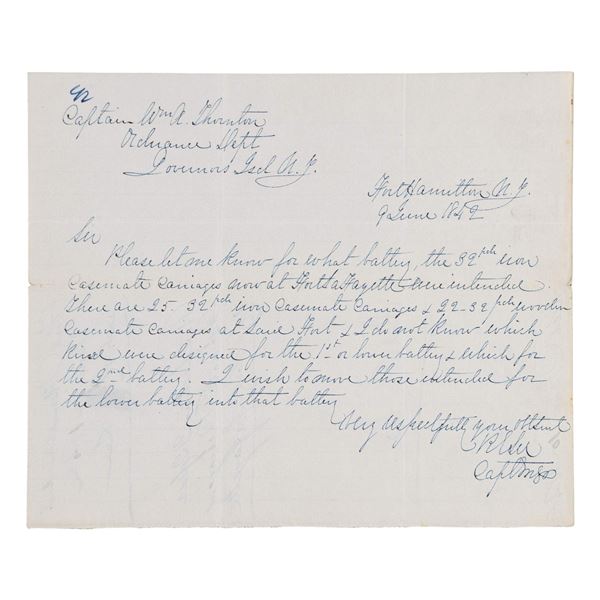 42
Captain Wm A. Thornton
Ordnance Dept
Governors Isld N.Y.
Fort Hamilton N.Y.
9 June 1842
Sir
Please let me know for what battery, the 32 pdr iron
Casemate Carriages now at Fort La Fayette were intended.
There are 25-32 pdr iron Casemate Carriages & 22-32 pdr wooden
Casemate Carriages at said Fort & I do not know which
kind were designed for the 1st or lower battery & which for
the 2nd battery. I wish to move those intended for
the lower battery into that battery
Very respectfully your obt Servt
R E Lee
Capt Engrs